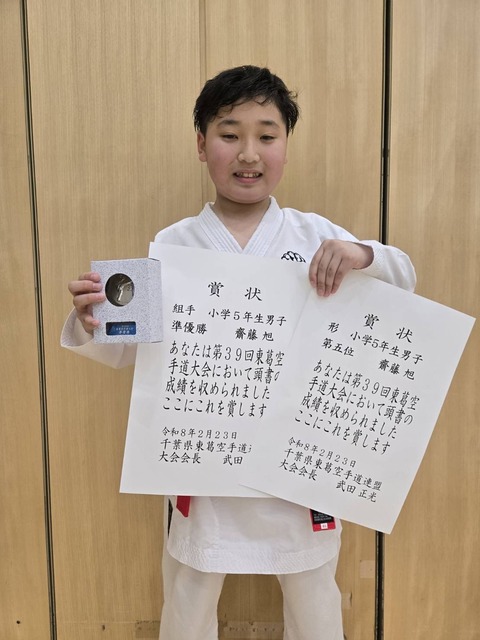 賞状
組手 小学5年生男子
準優勝 齋藤 旭
あなたは第39回東葛空
手道大会において頭書の
成績を収められました
ここにこれを賞します
令和8年2月23日
千葉県東葛空手道
大会会長 武田
賞状
形 小学5年生男子
第五位 齋藤 旭
あなたは第39回東葛空
手道大会において頭書の
成績を収められました
ここにこれを賞します
令和8年2月23日
千葉県東葛空手道連盟
大会会長 武田 正光